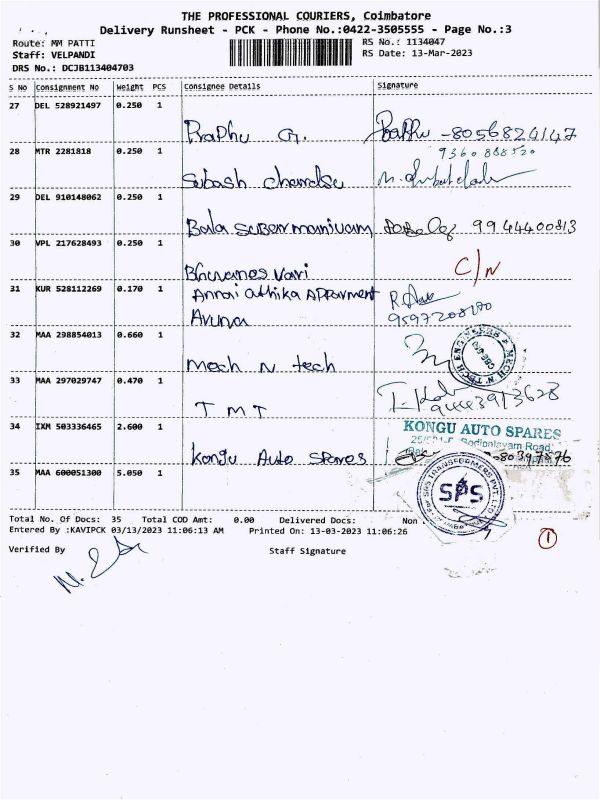 THE PROFESSIONAL COURIERS, Coimbatore
Delivery Runsheet - PCK - Phone No.:0422-3505555 - Page No.:3
Route: MM PATTI RS No.: 1134047
Staff: VELPANDI RS Date: 13-Mar-2023
DRS No.: DCJB113404703
S No Consignment No Weight PCS Consignee Details Signature
27 DEL 528921497 0.250 1
Prabhu G. Prabhu - 8056824147
28 MTR 2281818 0.250 1 9360888520
Subash Chandse
29 DEL 910148062 0.250 1
Bala Subermaniyam 9944400813
30 VPL 217628493 0.250 1
Bhuvaneswari C/N
31 KUR 528112269 0.170 1 Annai Athika Apparment
Aruna 9597208200
32 MAA 298854013 0.660 1
Mech N tech MECH N TECH ENGINEERS CBE
33 MAA 297029747 0.470 1
TMT
34 IXM 503336465 2.600 1 KONGU AUTO SPARES
Kongu Auto Spares
35 MAA 600051300 5.050 1
SPS TRANSFORMERS PVT. LTD
SPS
Total No. Of Docs: 35 Total COD Amt: 0.00 Delivered Docs: Non
Entered By :KAVIPCK 03/13/2023 11:06:13 AM Printed On: 13-03-2023 11:06:26
1
Verified By Staff Signature